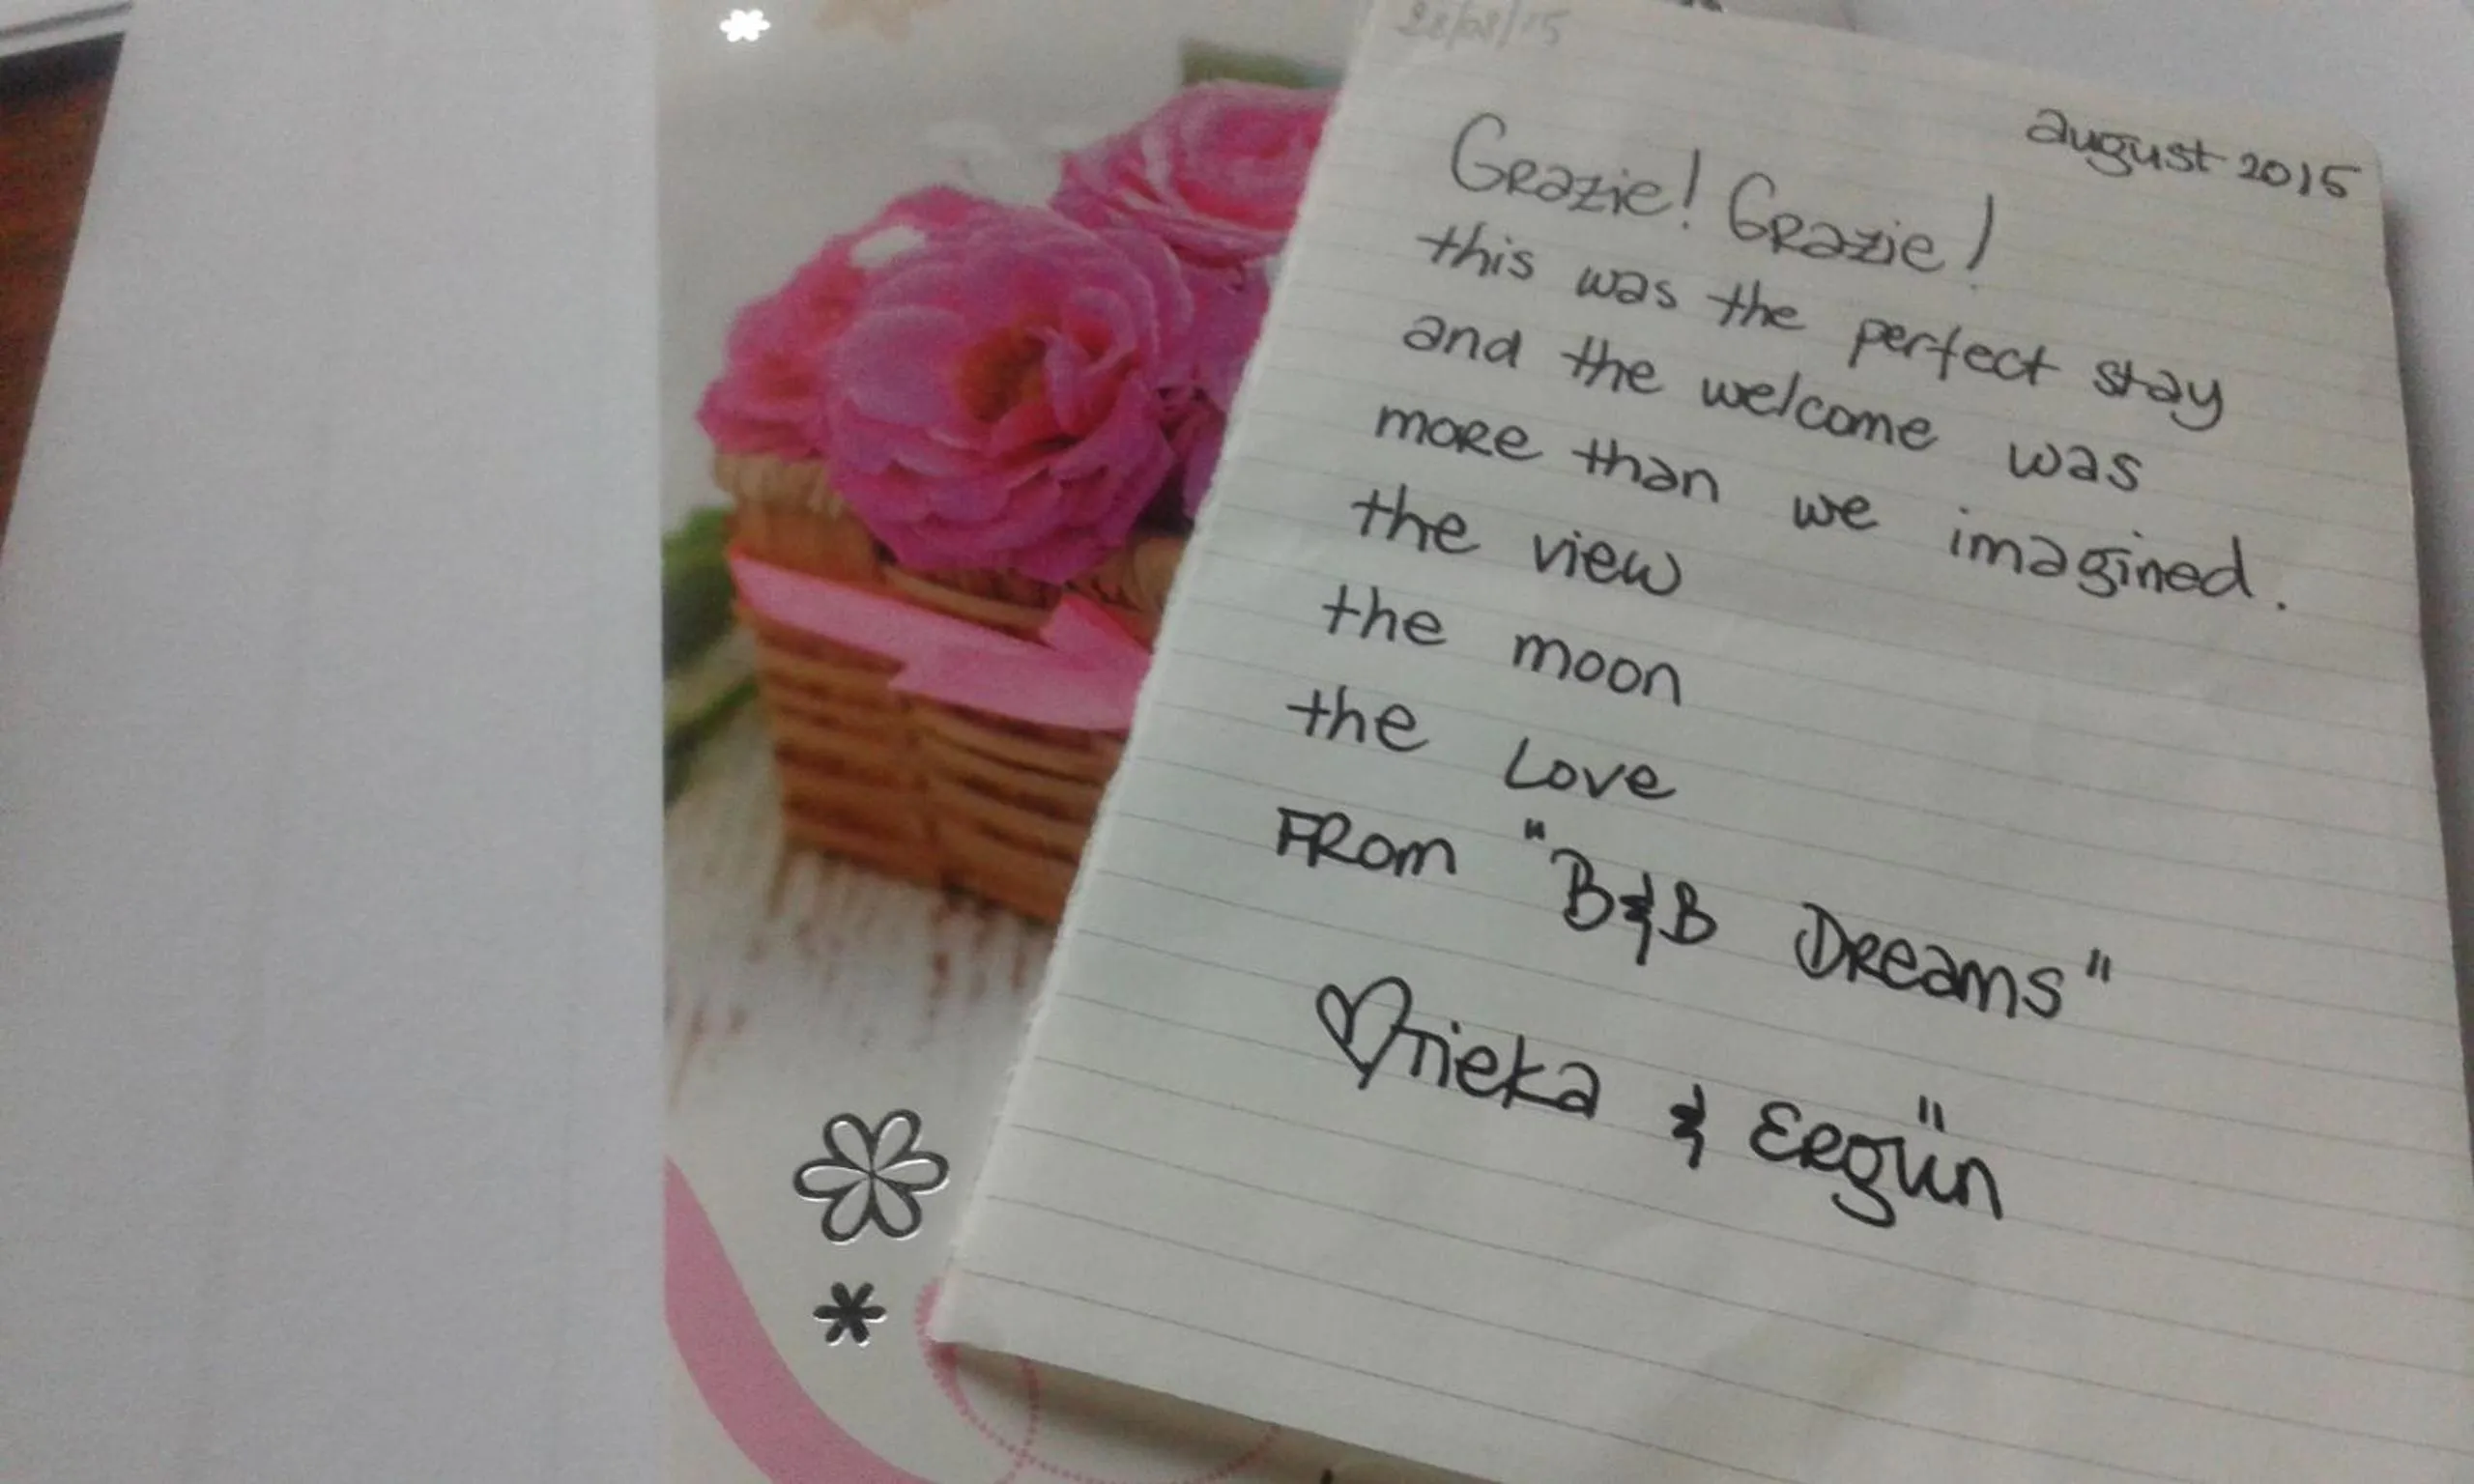 28/08/15
august 2015
Grazie! Grazie!
this was the perfect stay
and the welcome was
more than we imagined.
the view
the moon
the Love
FRom "B&B Dreams"
Tieka & Ergün